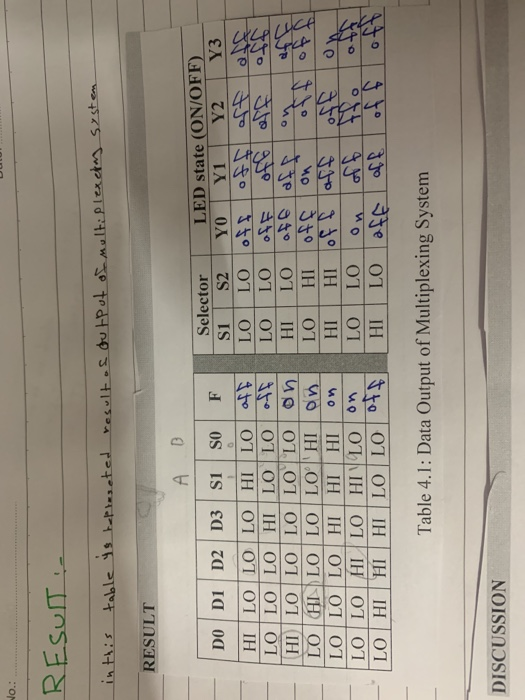 No.:
RESULT :-
in this table is represented result os output of multiplexing system
RESULT
A B
Selector LED state (ON/OFF)
D0 D1 D2 D3 S1 S0 F S1 S2 Y0 Y1 Y2 Y3
HI LO LO LO HI LO off LO LO off off off off
LO LO LO HI LO LO off LO LO off off off off
HI LO LO LO LO LO on HI LO off off on off
LO HI LO LO LO HI on LO HI off on off off
LO LO LO HI HI HI on HI HI off off off on
LO LO HI LO HI LO on LO LO on off off off
LO HI HI HI LO LO off HI LO off off off off
Table 4.1: Data Output of Multiplexing System
DISCUSSION